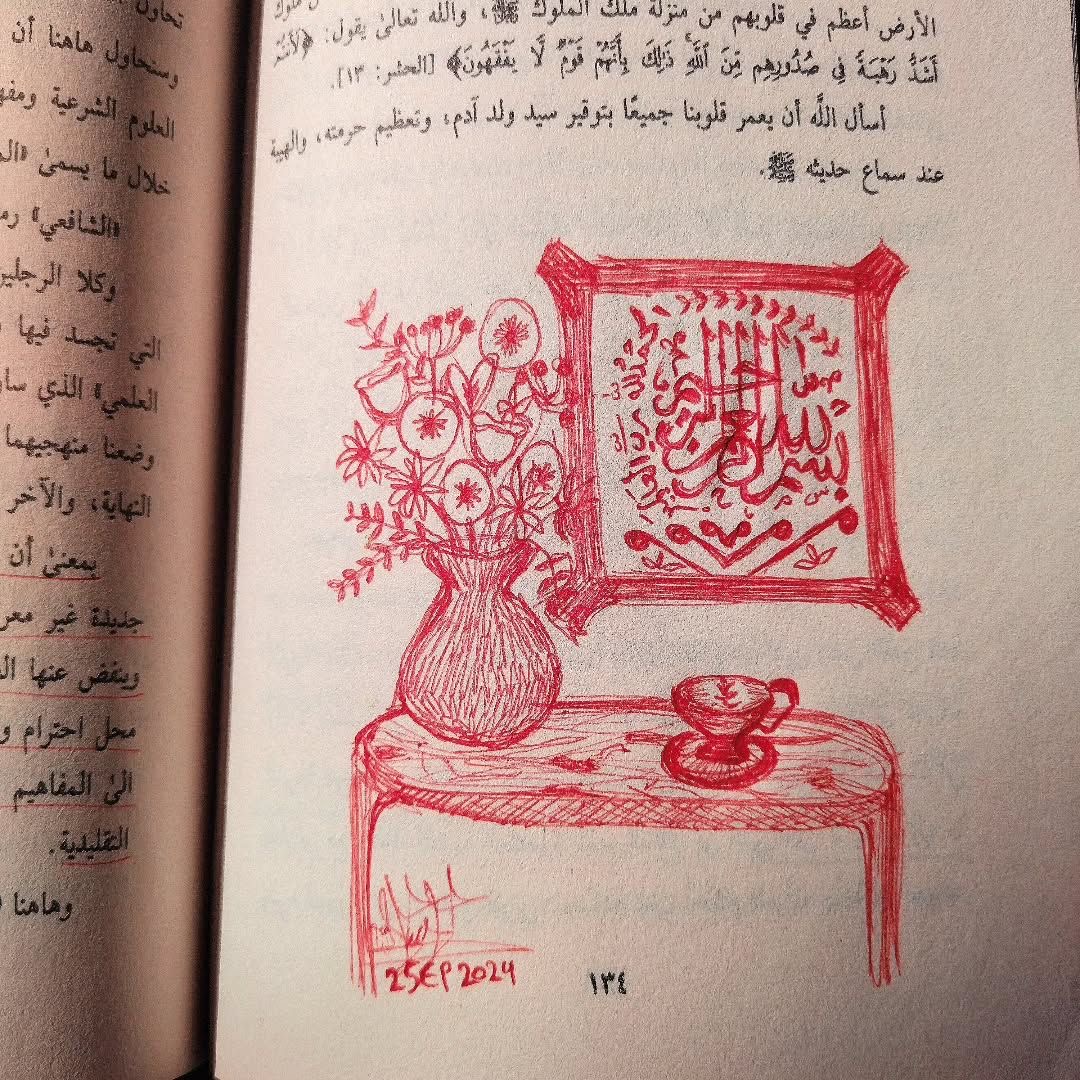 الأرض أعظم في قلوبهم من منزلة ملك الملوك ﷺ، والله تعالىٰ يقول: ﴿لَأَنتُمْ
أَشَدُّ رَهْبَةً فِي صُدُورِهِم مِّنَ ٱللَّهِ ذَٰلِكَ بِأَنَّهُمْ قَوْمٌ لَّا يَفْقَهُونَ﴾ [الحشر: ١٣].
أسأل اللَّه أن يعمر قلوبنا جميعًا بتوقير سيد ولد آدم، وتعظيم حرمته، والهيبة
عند سماع حديثه ﷺ.
بسم الله الرحمن الرحيم
2SEP 2024
١٣٤
تحاول
وسنحاول هاهنا أن
العلوم الشرعية
خلال ما يسمىٰ
«الشافعي»
وكلا الرجلين
التي تجسد فيها
العلمي» الذي
وضعنا منهجيهما
النهاية، والآخر
بمعنىٰ أن
جديدة غير
وينفض عنها
محل احترام
الىٰ المفاهيم
التقليدية.
وهاهنا